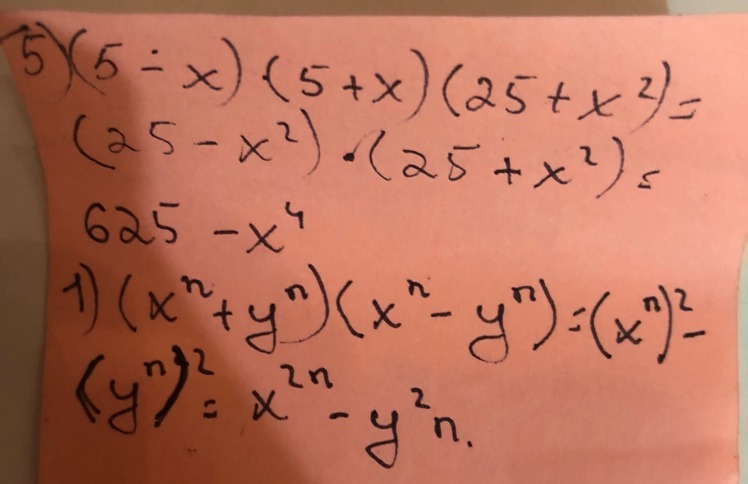 5) (5 ÷ x) · (5 + x) (25 + x²) =
(25 - x²) · (25 + x²) =
625 - x⁴
1) (xⁿ + yⁿ) (xⁿ - yⁿ) = (xⁿ)² -
(yⁿ)² = x²ⁿ - y²n.